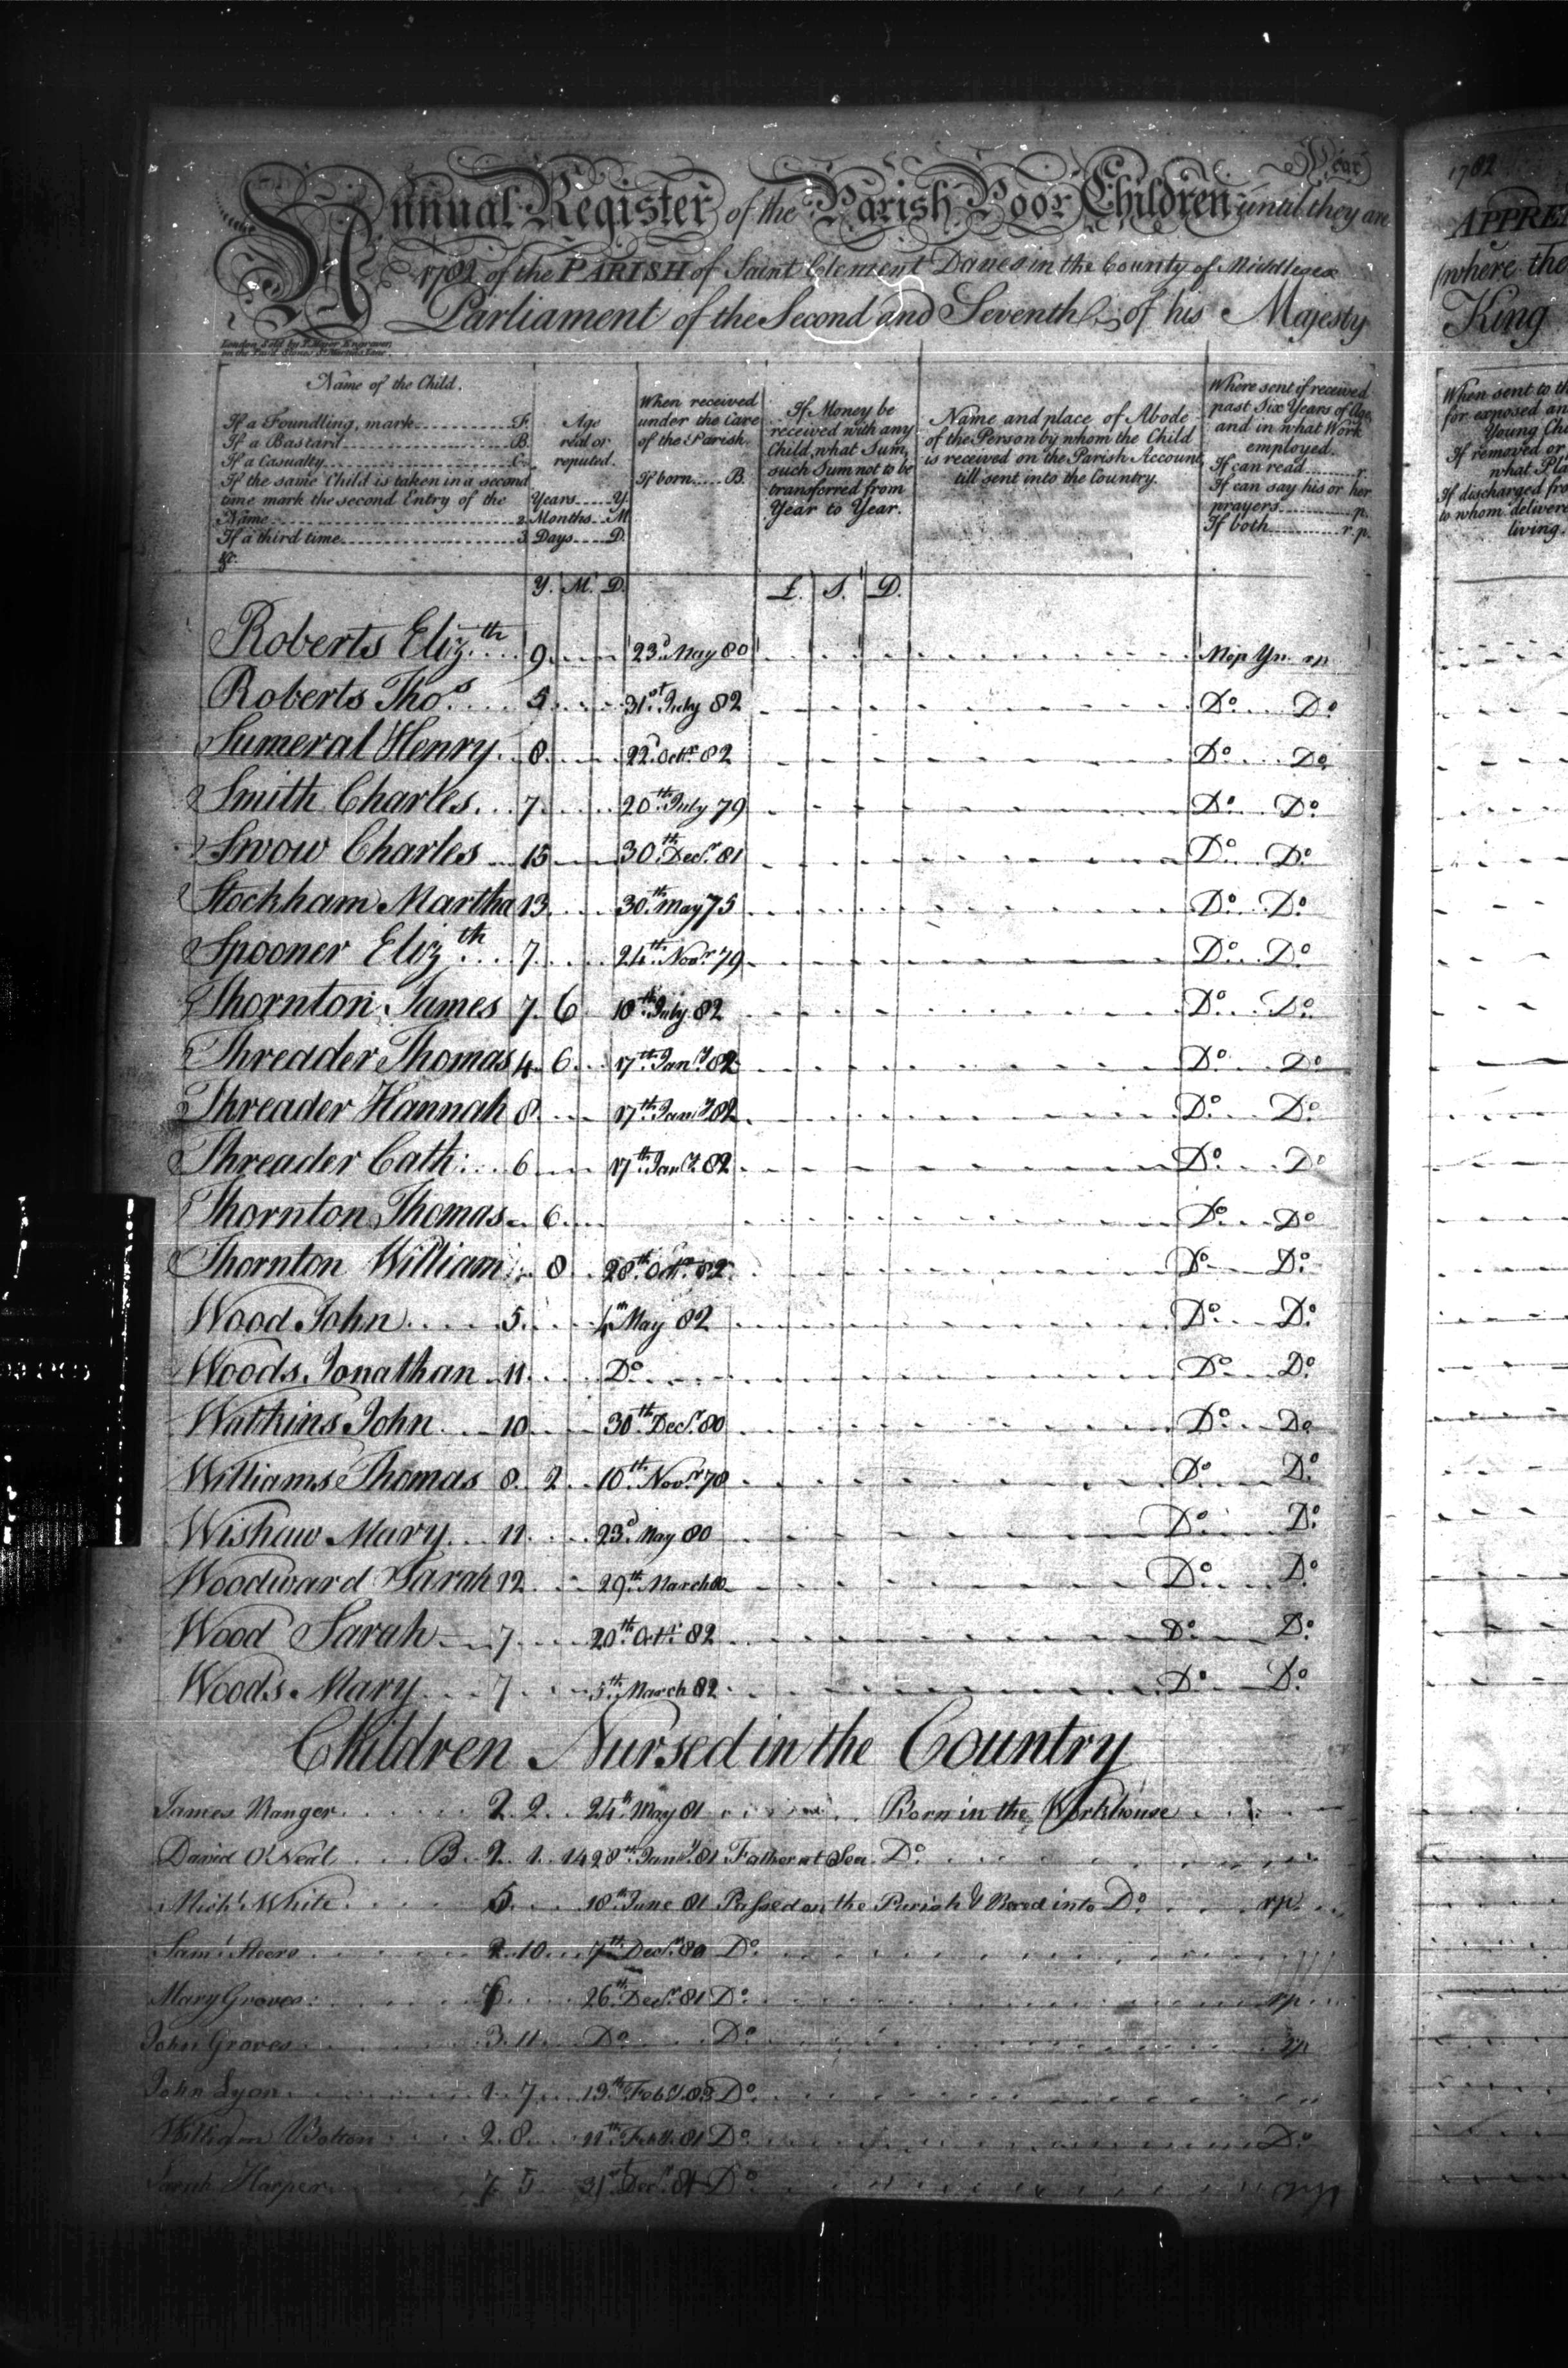 Year
Annual Register of the Parish Poor Children until they are
1782 of the PARISH of Saint Clement Danes in the County of Middlesex
Parliament of the Second and Seventh of his Majesty
London Sold by
Name of the Child.
If a Foundling, mark F.
If a Bastard B.
If a Casualty C.
If the same Child is taken in a second
time mark the second Entry of the
Name 2.
If a third time 3
&c.
Age
real or
reputed.
Years Y.
Months M
Days D.
When received
under the Care
of the Parish.
If born B.
If Money be
received with any
Child, what Sum,
such Sum not to be
transferred from
Year to Year.
Name and place of Abode
of the Person by whom the Child
is received on the Parish Account,
till sent into the Country.
Where sent if received
past Six Years of Age,
and in what Work
employed.
If can read r.
If can say his or her
prayers p.
If both r. p.
Y. M. D. £. S. D.
Roberts Eliz.th 9 23d May 80 Mop Yn
Roberts Tho.s 31st July 82 Do Do
Sumeral Henry 8 22d Octr 82 Do Do
Smith Charles 7 20th July 79 Do Do
Snow Charles 15 30th Decr 81 Do Do
Stockham Martha 13 30th May 75 Do Do
Spooner Eliz.th 7 24th Novr 79 Do Do
Thornton James 7 6 18th July 82 Do Do
Threader Thomas 4 6 17th Jany 82 Do Do
Threader Hannah 8 17th Jany 82 Do Do
Threader Cath: 6 17th Jany 82 Do Do
Thornton Thomas 6 Do Do
Thornton William 8 28th Octr 82 Do Do
Wood John 5 4th May 82 Do Do
Woods Jonathan 11 Do Do Do
Watkins John 10 30th Decr 80 Do Do
Williams Thomas 8 2 10th Novr 78 Do Do
Wishaw Mary 11 23d May 80 Do Do
Woodward Sarah 12 29th March 80 Do Do
Wood Sarah 7 20th Octr 82 Do Do
Woods Mary 7 5th March 82 Do Do
Children Nursed in the Country
James Ranger 2 2 24th May 81 Born in the Workhouse
David O'Neal B 2 1 14 28th Jany 81 Father at Sea Do
Michl White 5 18th June 81 Passed on the Parish & Reced into Do rp
Saml Steers 2 10 7th Decr 80 Do
Mary Groves 26th Decr 81 Do rp
John Groves 3 11 Do Do rp
John Lyon 1 7 19th Feby Do
William Bolton 2 8 11th Feby 81 Do Do
Sarah Harper 7 5 31st Decr 81 Do rp
1782
APPRE
(where the
King
When sent to th
for exposed an
Young Chi
If removed or
what Pla
If discharged fro
to whom deliver
living.